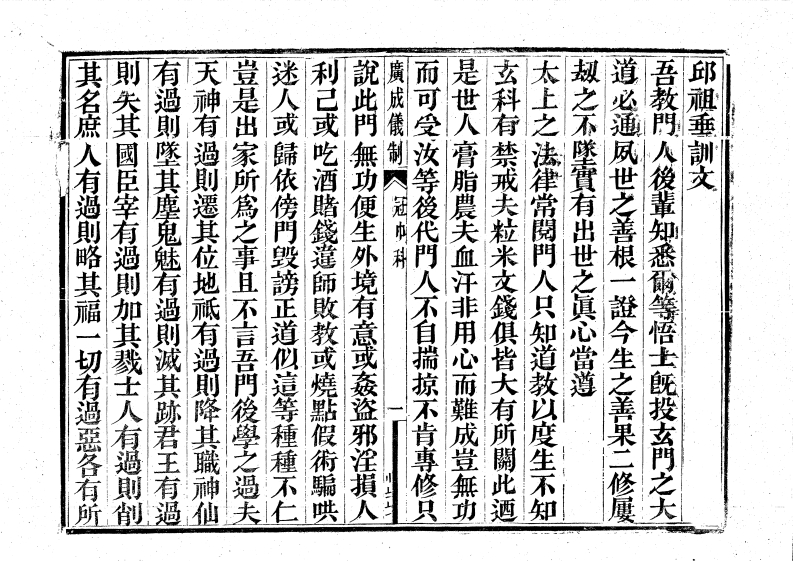 邱祖垂訓文
吾教門人後輩知悉爾等悟士既投玄門之大
道必通夙世之善根一證今生之善果二修屢
刼之不墜實有出世之眞心當遵
太上之法律常閱門人只知道教以度生不知
玄科有禁戒夫粒米文錢俱皆大有所關此迺
是世人膏脂農夫血汗非用心而難成豈無功
而可受汝等後代門人不自揣掠不肯專修只
廣成儀制 冠巾科 一
說此門無功便生外境有意或姦盜邪淫損人
利己或吃酒賭錢違師敗教或燒點假術騙哄
迷人或歸依傍門毀謗正道似這等種種不仁
豈是出家所爲之事且不言吾門後學之過夫
天神有過則遷其位地祇有過則降其職神仙
有過則墜其塵鬼魅有過則滅其跡君王有過
則失其國臣宰有過則加其戮士人有過則削
其名庶人有過則略其福一切有過惡各有所